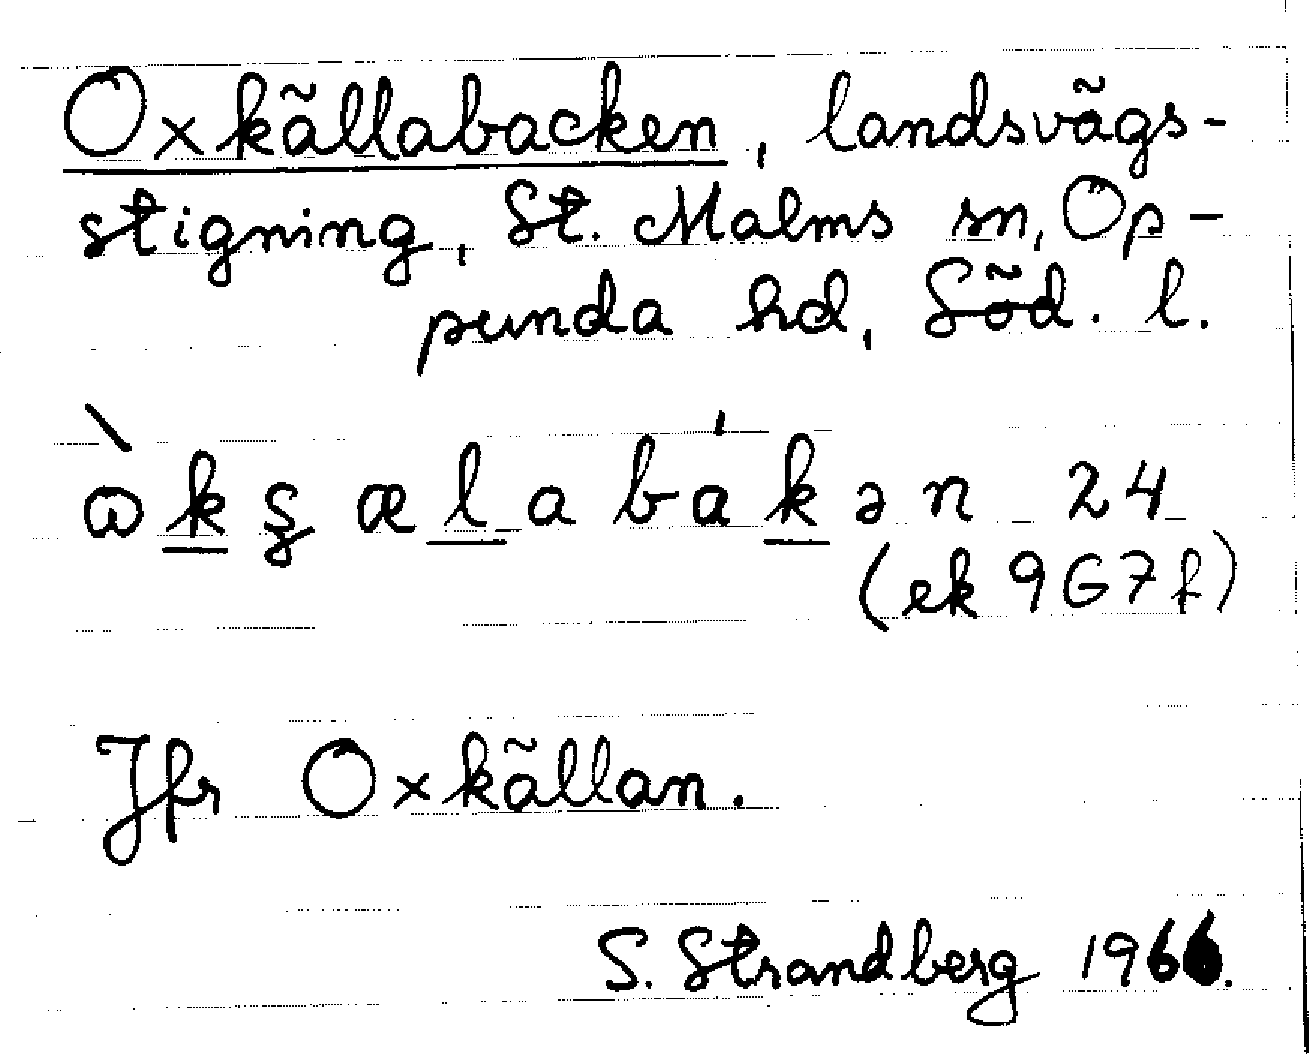 Oxkällabacken, landsvägs-
stigning, St. Malms sn, Op-
punda hd, Söd. l.
ὼkʂælabákən 24
(ek 9G7f)
Jfr Oxkällan.
S. Strandberg 1966.